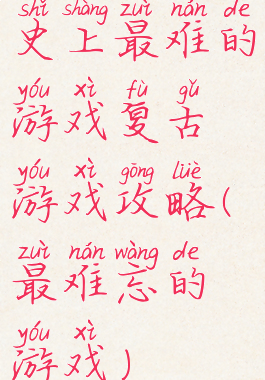 shǐ shàng zuì nán de
史上最难的
yóu xì fù gǔ
游戏复古
yóu xì gōng lüè
游戏攻略(
zuì nán wàng de
最难忘的
yóu xì
游戏)